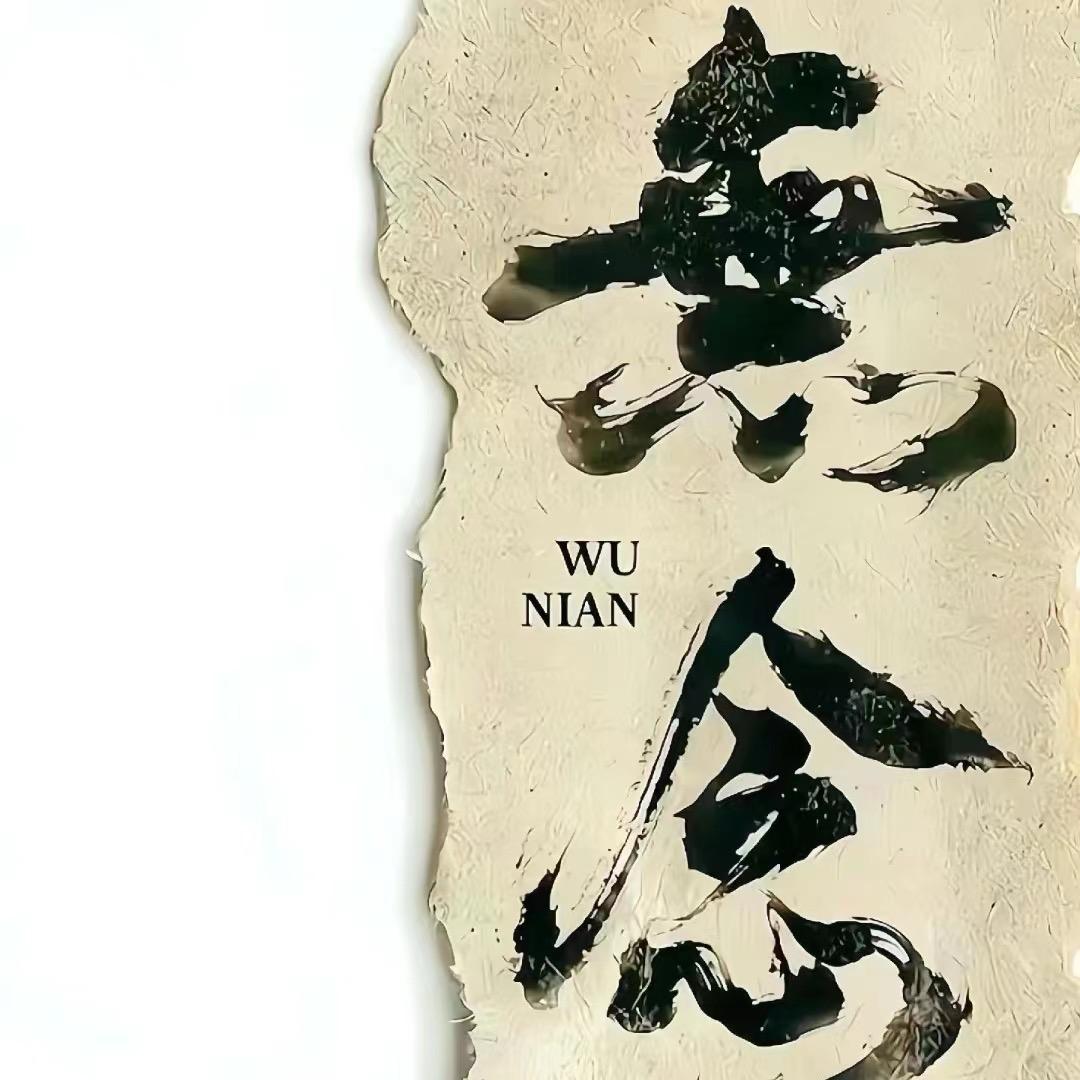 無
念
WU
NIAN